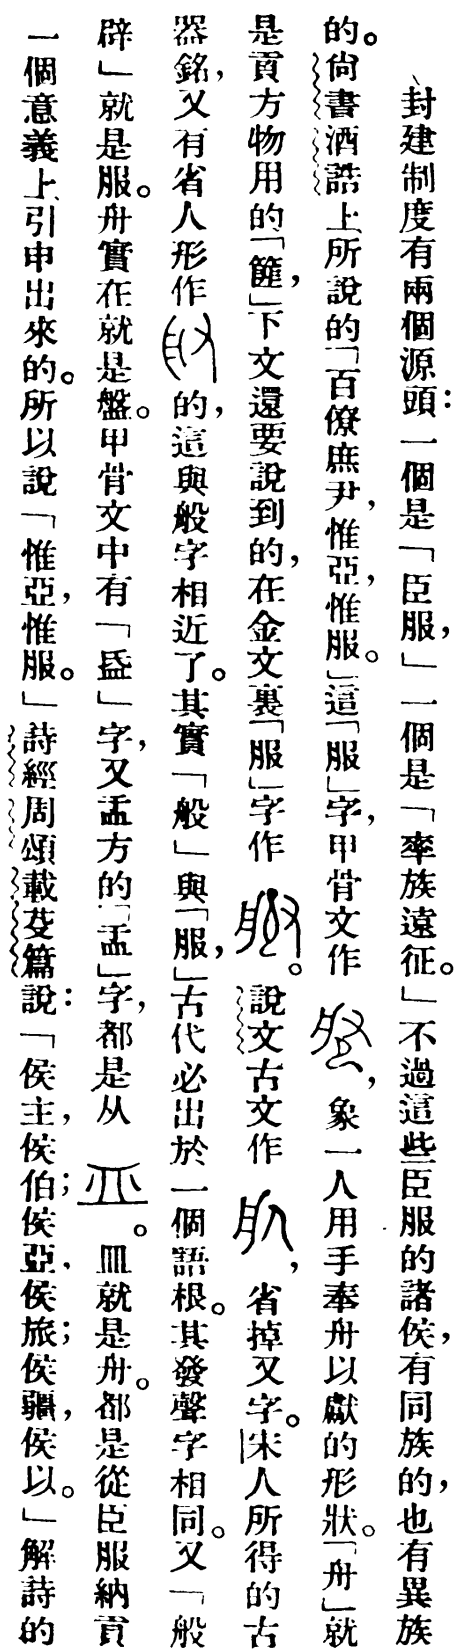 封建制度有兩個源頭：一個是「臣服，」一個是「率族遠征。」不過這些臣服的諸侯，有同族的，也有異族
的。尙書酒誥上所說的「百僚庶尹，惟亞，惟服。」這「服」字，甲骨文作，象一人用手奉舟以獻的形狀。「舟」就
是貢方物用的「簰，」下文還要說到的，在金文裏「服」字作。說文古文作，省掉又字。宋人所得的古
器銘，又有省人形作的，這與般字相近了。其實「般」與「服，」古代必出於一個語根。其發聲字相同。又「般
辟」就是服。舟實在就是盤。甲骨文中有「昷」字，又盂方的「盂」字，都是从。皿就是舟。都是從臣服納貢
一個意義上引申出來的。所以說「惟亞，惟服。」詩經周頌載芟篇說：「侯主，侯伯；侯亞，侯旅；侯彊，侯以。」解詩的